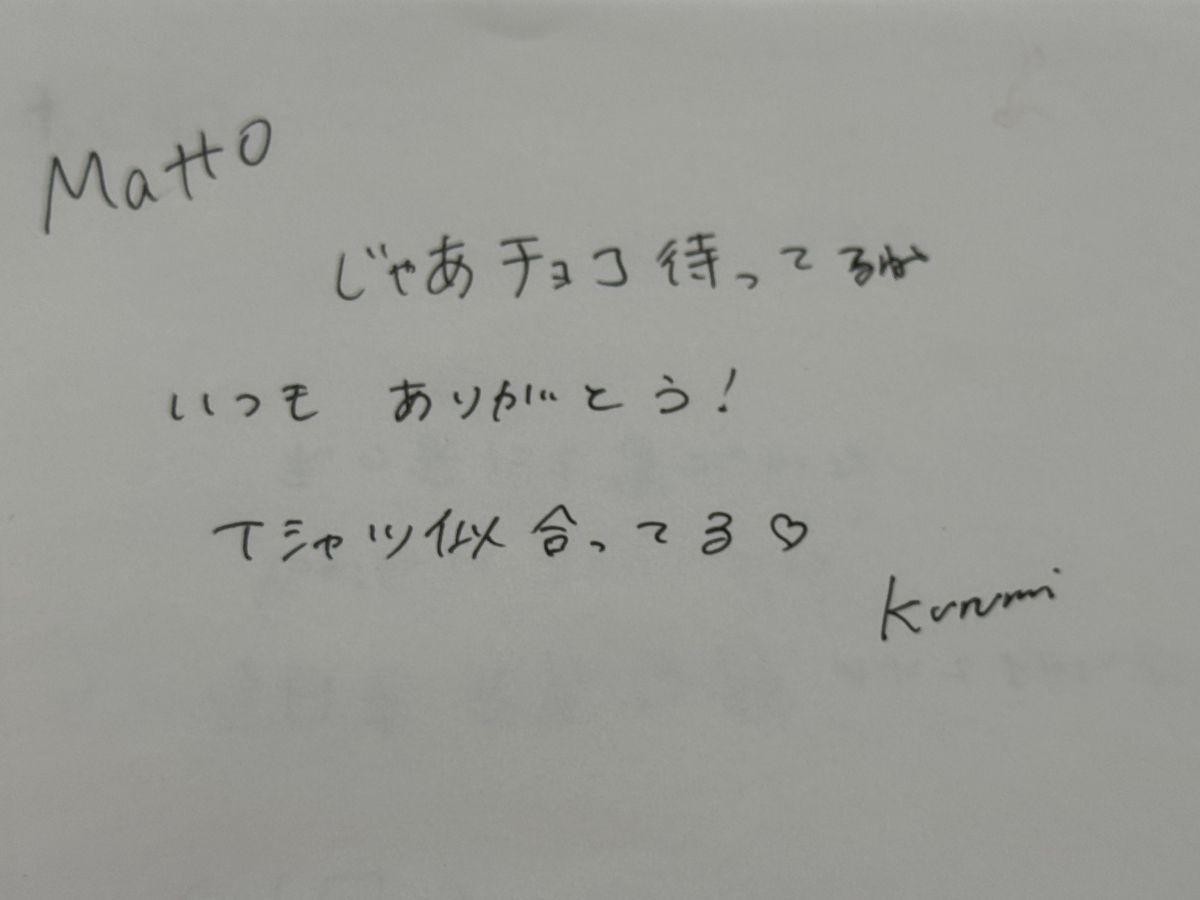 Matto
じゃあチョコ待ってるね
いつも ありがとう!
Tシャツ似合ってる♡
Kurumi